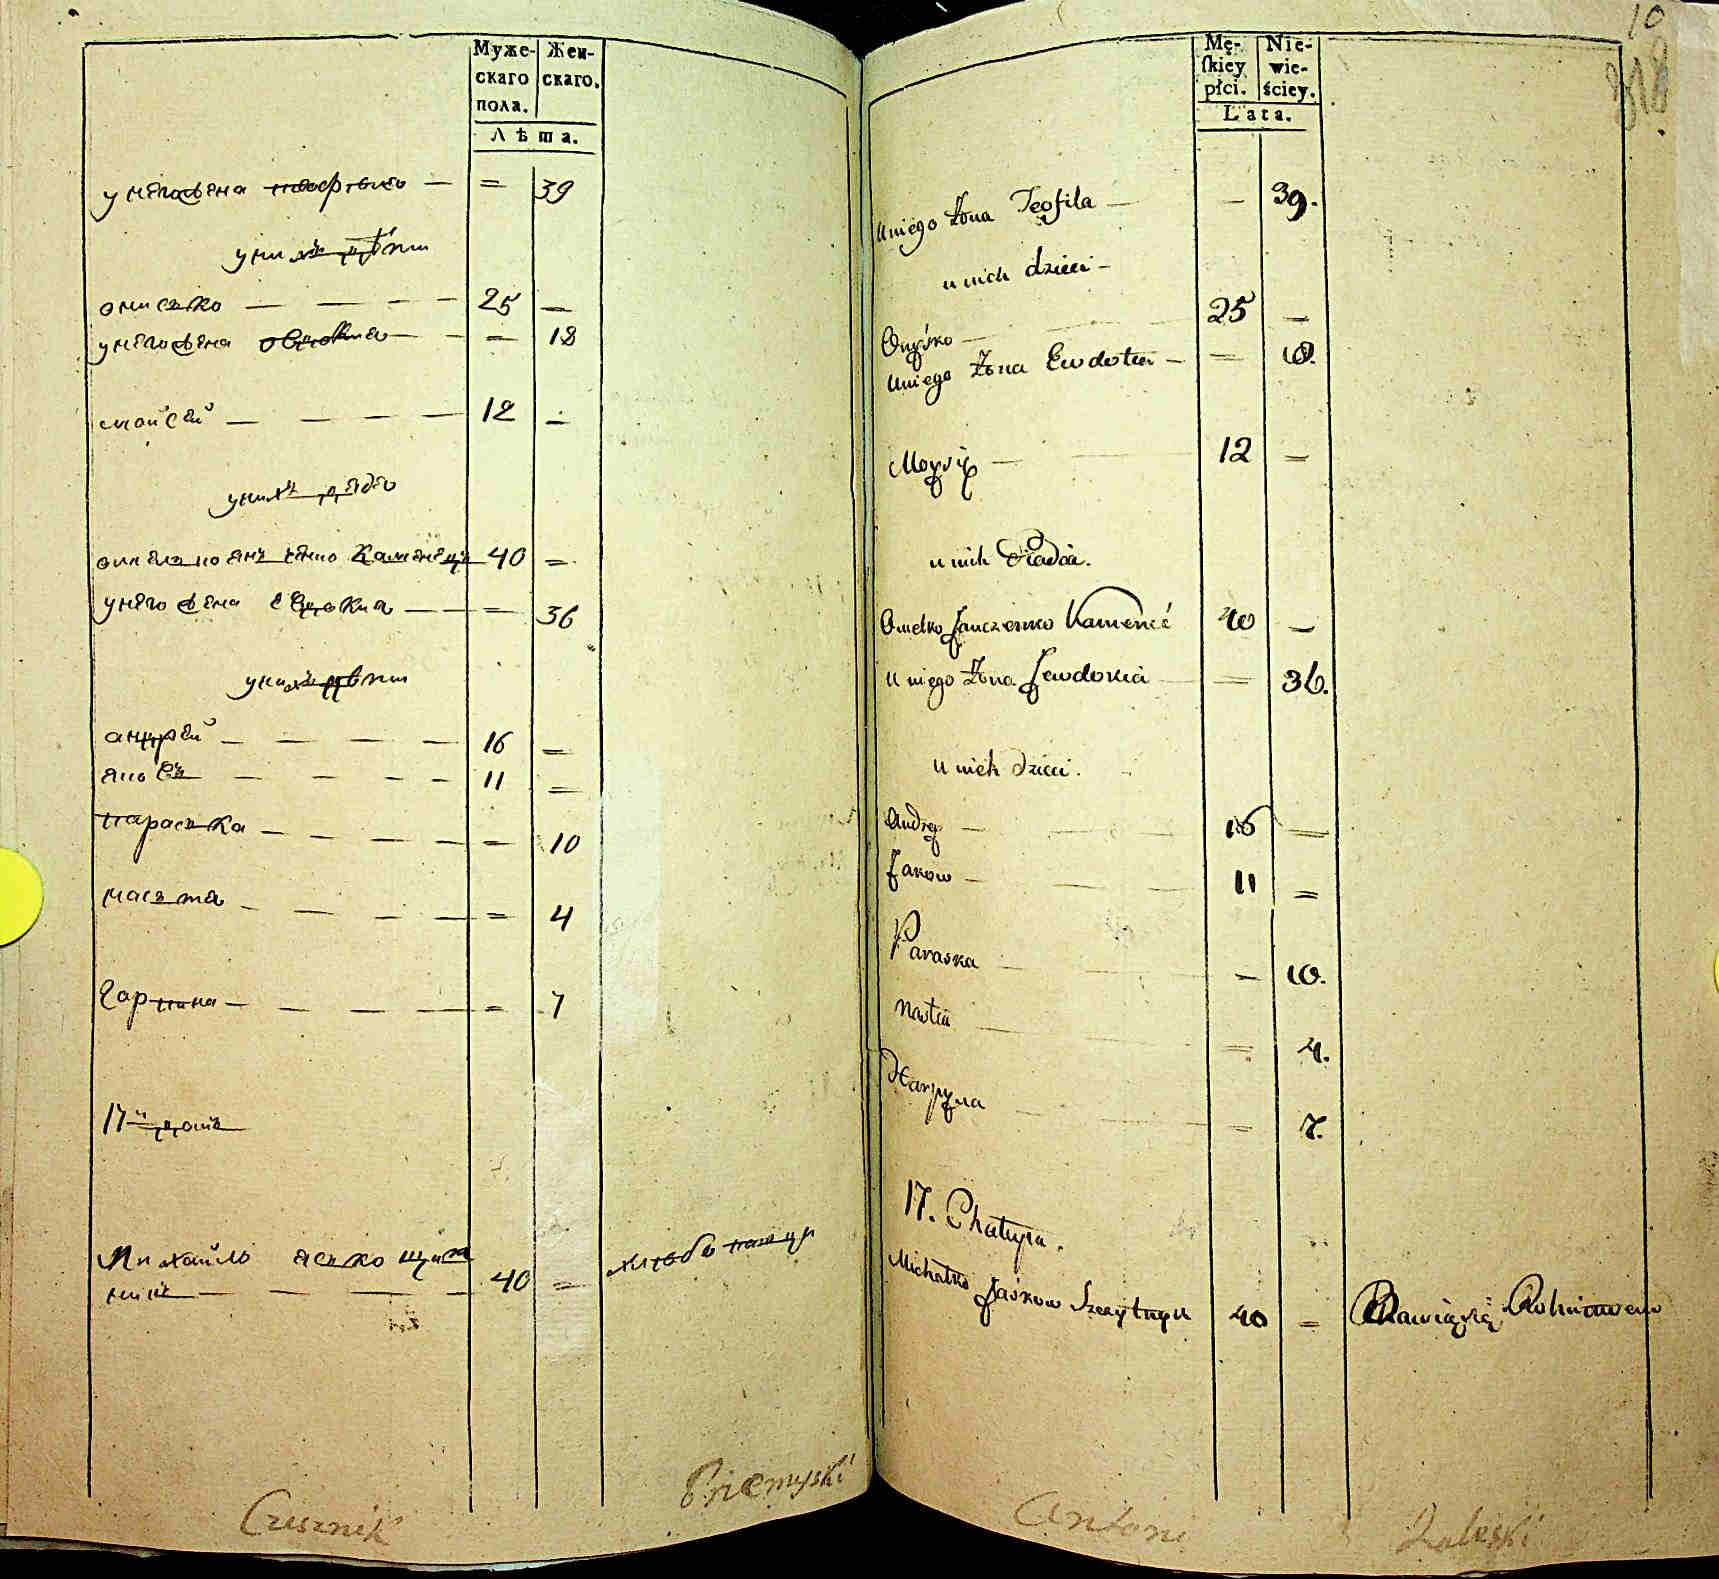 Муже-
скаго
пола.
Жен-
скаго.
Лѣта.
у него жена теофила — = 39
у нихъ дѣти
онисько — 25 —
у него жена овдокиа — = 18
мойсей — 12 —
у нихъ дядя
40 =
у него жена евдокиа — = 36
у нихъ дѣти
андрей — 16 =
яковъ — 11 =
параска — = 10
наста — = 4
гарпина — = 7
17й домъ
Михайло ясько щит
ник — 40 =
Priemyski
Czesznik
10
318
Mę-
skiey
płci.
Nie-
wie-
ściey.
Lata.
u niego żona Teofila — — 39.
u nich dzieci —
Onyśko — 25 —
u niego żona Ewdokia — = 18.
Moysiy — 12 =
u nich Diadia.
Omelko Janczenko Kamenić 40 —
u niego żona Jewdokia — = 36.
u nich dzieci.
Andrey — 16 =
Jakow — 11 =
Paraska — — 10.
Nastia — = 4.
Harpyna — = 7.
17. Chałupa.
Michałko Jaśkow 40 =
Antoni
Zaleski